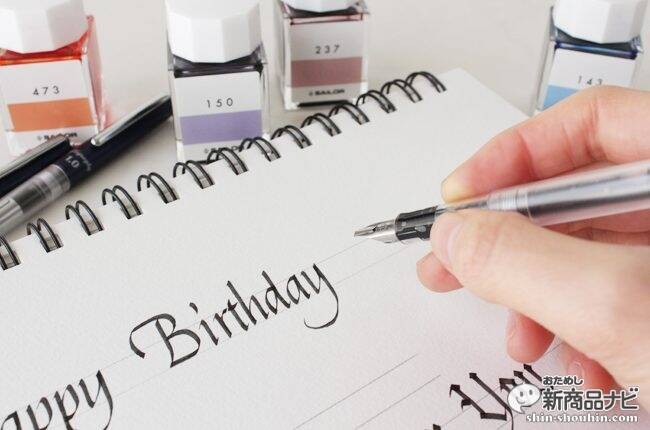 473
SAILOR
150
237
SAILOR
143
1.0
appy Birthday
You
おためし
新商品ナビ
shin-shouhin.com